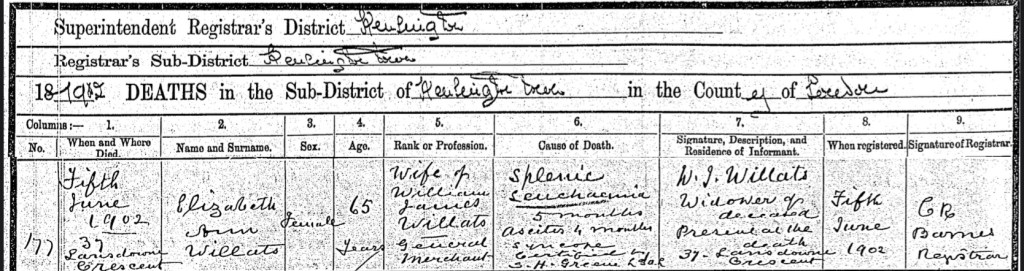 Superintendent Registrar's District Kensington
Registrar's Sub-District Kensington Town
18 1902 DEATHS in the Sub-District of Kensington Town in the County of London
Columns:— 1. 2. 3. 4. 5. 6. 7. 8. 9.
No. When and Where Died. Name and Surname. Sex. Age. Rank or Profession. Cause of Death. Signature, Description, and Residence of Informant. When registered. Signature of Registrar.
177
Fifth
June
1902
37
Lansdowne
Crescent
Elizabeth
Ann
Willats
Female
65
Years
Wife of
William
James
Willats
General
Merchant
Splenic
Leuchaemia
5 months
Ascites 4 months
Syncope
Certified by
S. H. Greene
W. J. Willats
Widower of
deceased
Present at the
death
37. Lansdowne
Crescent
Fifth
June
1902
CR
Barnes
Registrar